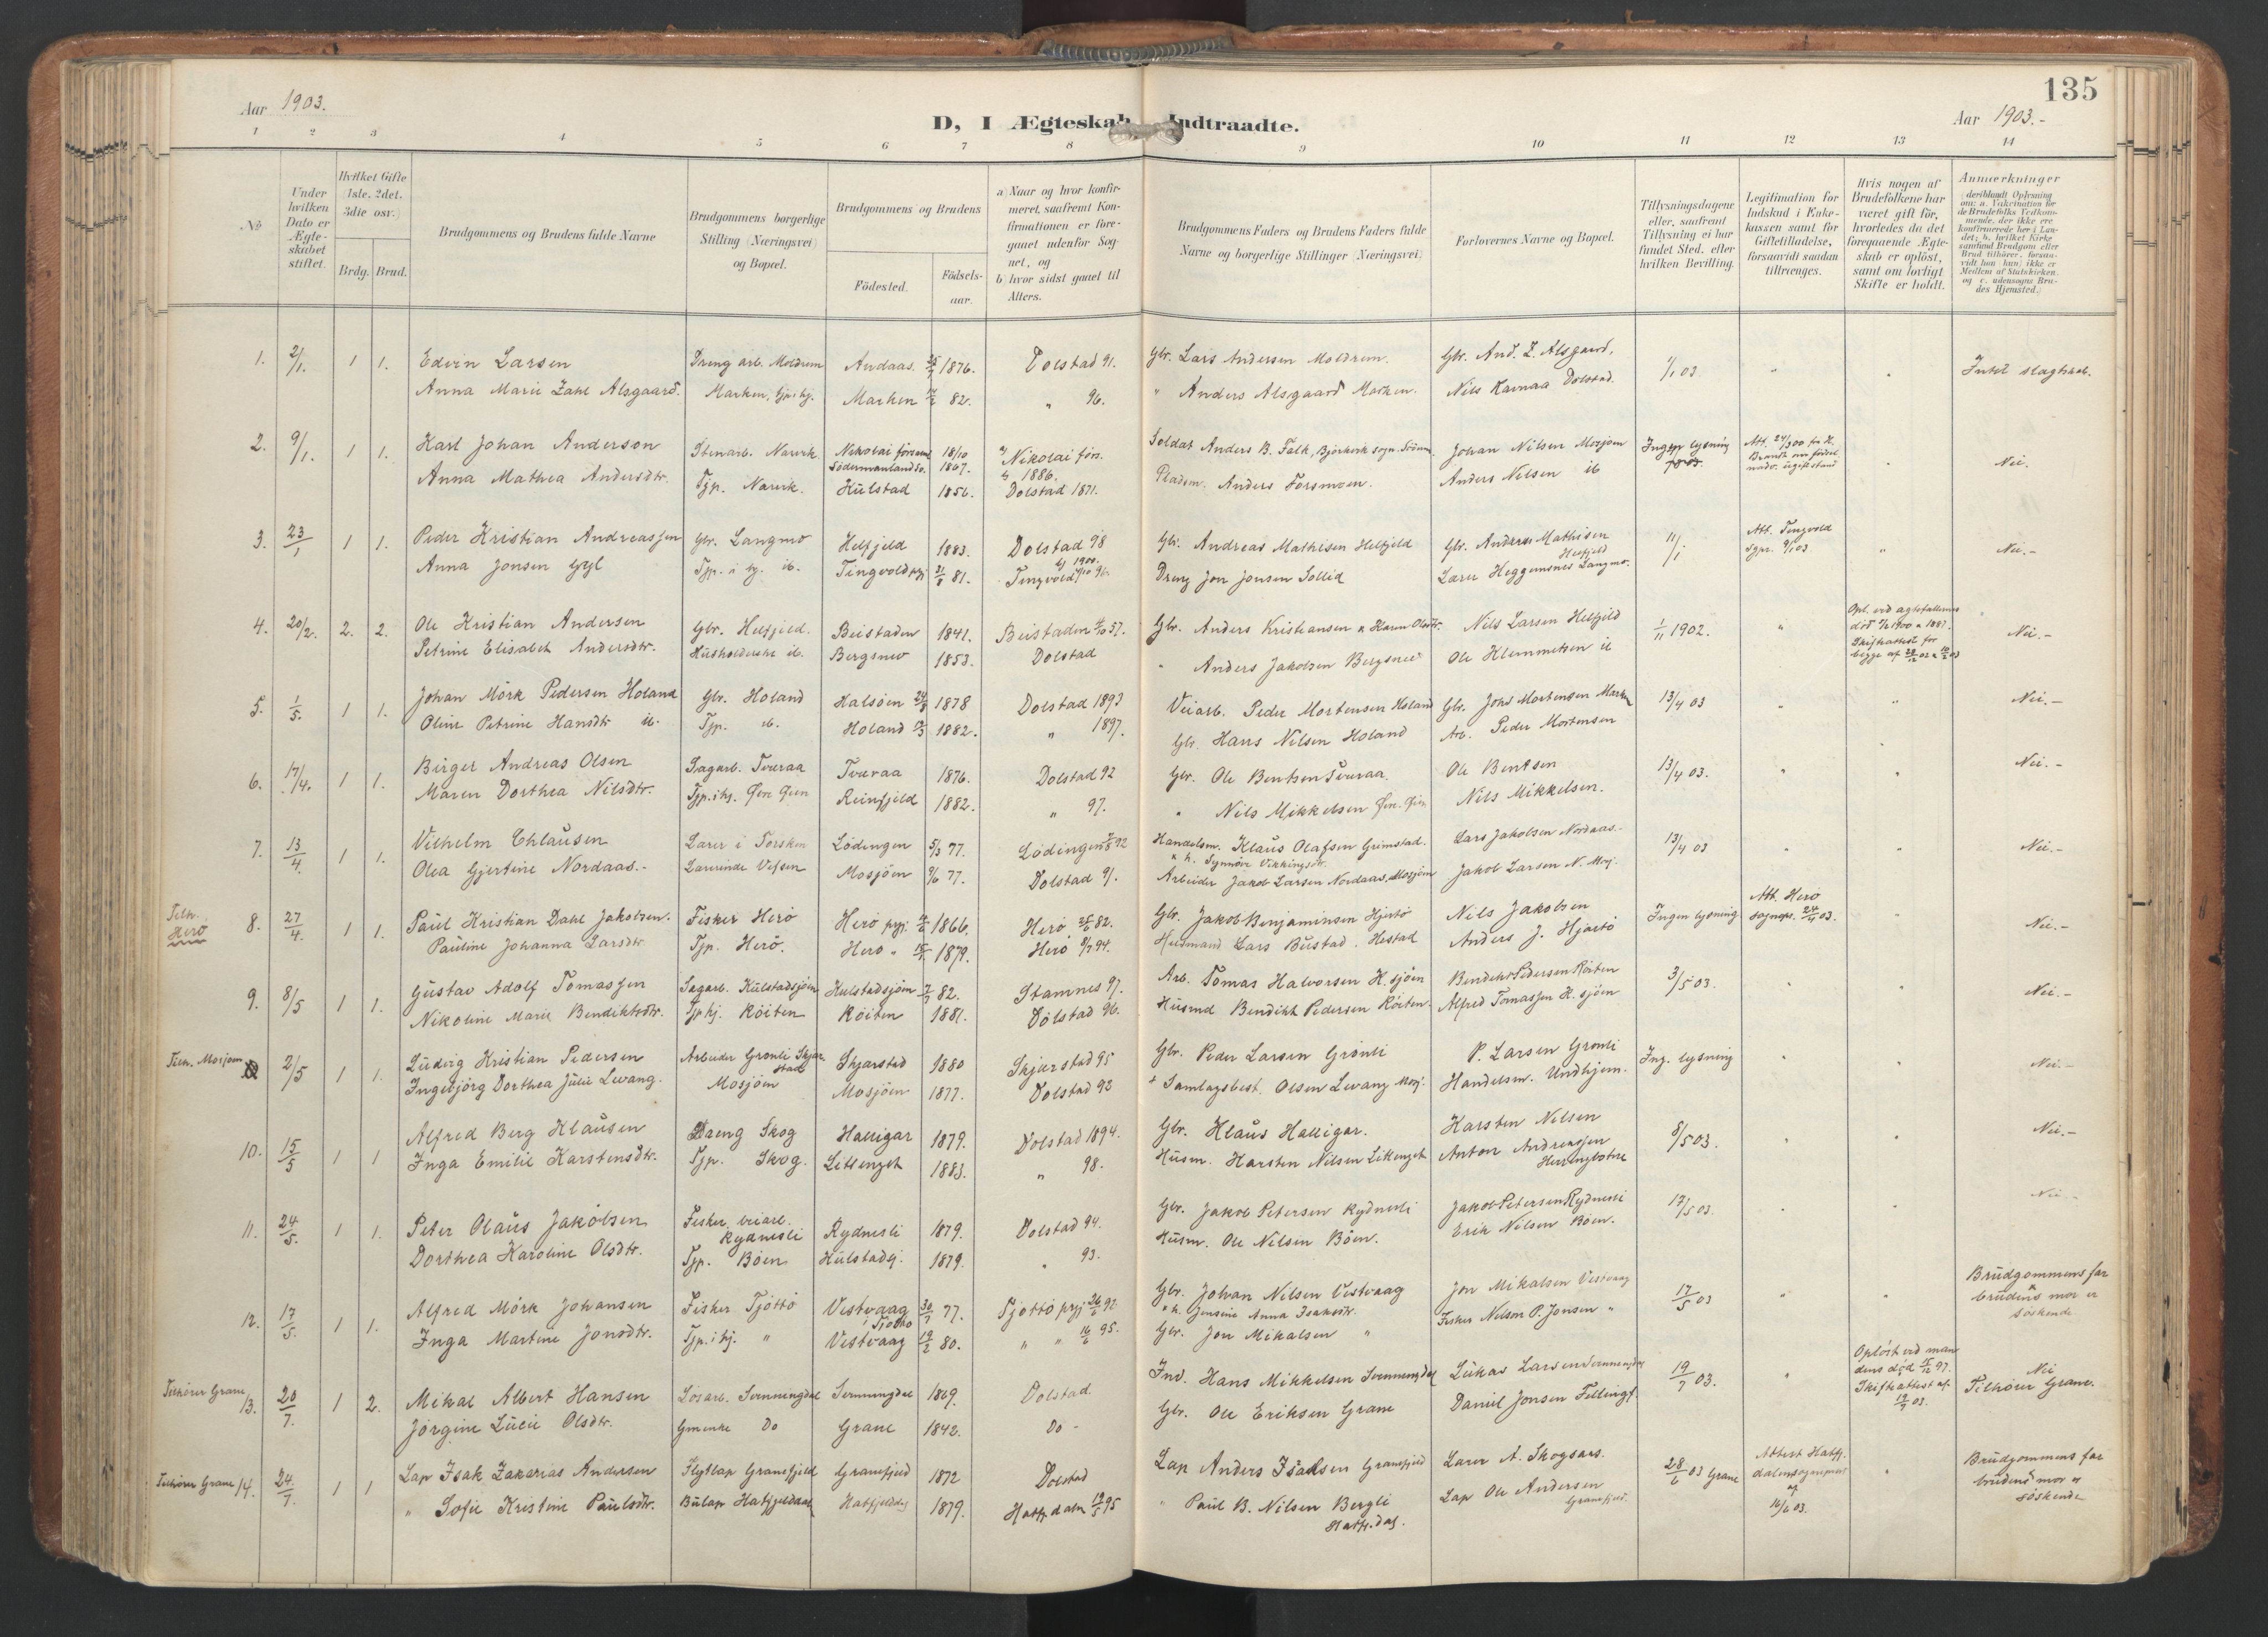 135
Aar 1903.
D, I Ægteskab Indtraadte.
Aar 1903.-
1 2 3 4 5 6 7 8 9 10 11 12 13 14
No
Under hvilken Dato er Ægteskabet stiftet.
Hvilket Gifte (1ste, 2det, 3die osv.)
Brdg. Brud.
Brudgommens og Brudens fulde Navne
Brudgommens borgerlige Stilling (Næringsvei) og Bopæl.
Brudgommens og Brudens
Födested.
Födsels-aar.
a) Naar og hvor konfirmeret, saafremt Konfirmationen er foregaaet udenfor Sognet, og
b) hvor sidst gaaet til Alters.
Brudgommens Faders og Brudens Faders fulde Navne og borgerlige Stillinger (Næringsvei)
Forlovernes Navne og Bopæl.
Tillysningsdagene eller, saafremt Tillysning ei har fundet Sted, efter hvilken Bevilling.
Legitimation for Indskud i Enkekassen samt for Giftetilladelse, forsaavidt saadan tiltrænges.
Hvis nogen af Brudefolkene har været gift för, hvorledes da det foregaaende Ægteskab er oplöst, samt om lovligt Skifte er holdt.
Anmærkninger (deriblandt Oplysning om: a. Vakcination for de Brudefolks Vedkommende, der ikke ere konfirmerede her i Landet; b. hvilket Kirkesamfund Brudgom eller Brud tilhörer, forsaavidt han (hun) ikke er Medlem af Statskirken, og c. udensogns Brudes Hjemsted.)
1. 2/1. 1 1. Edvin Larsen Dreng arb. Moldrem Andaas 1876. Dolstad 91. Gbr. Lars Andersen Moldrem. Gbr. And. Z. Alsgaard, 1/1 03 Intet slagtskab.
Anna Marie Zahl Alsgaard. Marken, Marken 82. " 96. " Anders Alsgaard Marken. Nils Kamaa Dolstad.
2. 9/1. 1 1. Karl Johan Anderson Stenarb. Narvik Nikolai 18/10 1867. a) Nikolai förs. b) 1886. Soldat Anders B. Falk, Björkvik sogn. Johan Nilsen Mosjøen Ingen lysning Nei.
Anna Mathea Andersdtr. Tjp. Narvik. Kulstad 1856. Dolstad 1871. Pladsm. Anders Forsmoen. Anders Nilsen ib
3. 23/1 1 1. Peder Kristian Andreassen Gbr. Langmo Helfjeld 1883. Dolstad 98 Gbr. Andreas Mathisen Helfjeld Gbr. Andreas Mathisen Helfjeld 11/1 Att. Tingvold sgpr. 9/1 03 " Nei.-
Anna Jonsen Gyl Tjp. i hj. ib. Tingvold prgj 81. Tingvold 96. Dreng Jon Jonsen Sollid Lærer Heggemsnes Langmo.
4. 20/2. 2. 2. Ole Kristian Andersen Gbr. Helfjeld. Beistaden 1841. Beistaden 57. Gbr. Anders Kristiansen & Karen Olsdtr. Nils Larsen Helfjeld 1/11 1902. " Nei.-
Petrine Elisabet Andersdtr. Husholderske ib. Bergsnev 1853. Dolstad " Anders Jakobsen Bergsnev Ole Klemmetsen ib
5. 1/5. 1 1. Johan Mörk Pedersen Holand Gbr. Holand Halsöen 1878 Dolstad 1893 Veiarb. Peder Mortensen Holand Gbr. Johs Mortensen Marken 13/4 03 " " Nei.-
Oline Petrine Hansdtr ib. Tjp. ib. Holand 1882. " 1897. Gbr. Hans Nilsen Holand Arb. Peder Mortensen
6. 17/4. 1 1. Birger Andreas Olsen Sagarb. Tveraa Tveraa 1876. Dolstad 92 Gbr. Ole Bentsen Tveraa. Ole Bentsen 13/4 03. " Nei.-
Maren Dorthea Nilsdtr. Tjp. i hj. Reinfjeld 1882. " 97. " Nils Mikkelsen Nils Mikkelsen.
7. 13/4. 1 1. Vilhelm Chlausen Lærer i Torsken Lödingen 5/3 77. Lödingen 92 Handelsm. Klaus Olafsen Grimstad. & h. Synnöve Vikkingsdtr. Lars Jakobsen Nordaas.- 13/4 03 Nei.-
Olea Gjertine Nordaas.- Lærerinde Vefsen Mosjöen 9/6 77. Dolstad 91. Arbeider Jakob Larsen Nordaas, Mosjöen Jakob Larsen N. Mosj.
Tilh. Herö 8. 27/4. 1 1. Paul Kristian Dahl Jakobsen. Fisker Herö Herö prgj. 1866. Herö 82. Gbr. Jakob Benjaminsen Hjertö Nils Jakobsen Ingen lysning Att. Herö sognepr. 24/4 03. Nei.-
Pauline Johanna Larsdtr Tjp. Herö. Herö " 1879. Herö 94. Husmand Lars Bustad. Hestad Anders J. Hjartö
9. 8/5 1 1. Gustav Adolf Tomassen Sagarb. Kulstadsjöen Kulstadsjöen 82. Stamnes 97. Arb. Tomas Halvorsen K. sjöen Bendikt Pedersen Röiten 3/5 03. Nei.-
Nikoline Marie Bendiktsdtr. Tjp hj. Röiten Röiten 1881. Dolstad 96. Husmd Bendikt Pedersen Röiten. Alfred Tomassen K. sjöen
Tilh. Mosjøen 2/5 1 1. Ludvig Kristian Pedersen Arbeider Grönli Skjerstad Skjerstad 1880 Skjerstad 95 Gbr. Peder Larsen Grönli P. Larsen Grönli Ing. lysning Nei.-
Ingebjörg Dorthea Julie Levang. Mosjöen Mosjöen 1877. Dolstad 92 Samlagsbest. Olsen Levang Mosj. Handelsm. Undhjem.
10. 15/5 1 1 Alfred Berg Klausen Dreng Skog Halligar 1879. Dolstad 1894. Gbr. Klaus Halligar. Karsten Nilsen 8/5 03. Nei.-
Inga Emilie Karstensdtr. Tjp. Skog. Litlenget 1883. " 98. Husm. Karsten Nilsen Litlenget Anton Andreassen
11. 24/5. 1 1. Peter Olaus Jakobsen Fisker, veiarb. Rydnesli Rydnesli 1879. Dolstad 94. Gbr. Jakob Petersen Rydnesli Jakob Petersen Rydnesli 17/5 03. Nei.-
Dorthea Karoline Olsdtr. Tjp. Böen Kulstadsj. 1879. " 93. Husm. Ole Nilsen Böen. Erik Nilsen Böen.
12. 17/5. 1 1. Alfred Mörk Johansen Fisker Tjöttö Vestvaag i Tjöttö 30/7 77. Tjöttö prgj 26/6 92 Gbr. Johan Nilsen Vestvaag & h. Jensine Anna Isaksdtr. Jon Mikalsen Vestvaag 17/5 03 " " Brudgommens far & brudens mor er söskende
Inga Martine Jonsdtr. Tjp. i hj. " Vestvaag 19/2 80. " " 16/6 95. Gbr. Jon Mikalsen " Fisker Nelson P. Jonsen "
Tilhörer Grane 13. 20/7. 1 2. Mikal Albert Hansen Lösarb. Svenningdal Svenningdal 1869. Dolstad. Ind. Hans Mikkelsen Svenningdal Lukas Larsen Svenningdal 19/7 03. " Oplöst ved mandens död 97. Skifteattest af 03. Nei Tilhörer Grane.
Jörgine Lucie Olsdtr. Gmenke Do Grane 1842. Do - Gbr. Ole Eriksen Grane Daniel Jonsen Fellingf.
Tilhörer Grane 14. 24/7. 1 1 Lap Isak Zakarias Andersen Flytlap Granefjeld Granefjeld 1872 Dolstad Lap Anders Isaksen Granefjeld Lærer A. Skogsaas. 28/6 03 Grane Attest Hatfjdalens sogneprest af 16/6 03. Brudgommens far & brudens mor er söskende
" Sofie Kristine Paulsdtr. Bulap Hatfjelddal Hatfjelddal 1879. Hatfj.dalen 95 " Paul B. Nilsen Bergli Hatfj.dal. Lap Ole Andersen Granefjeld.